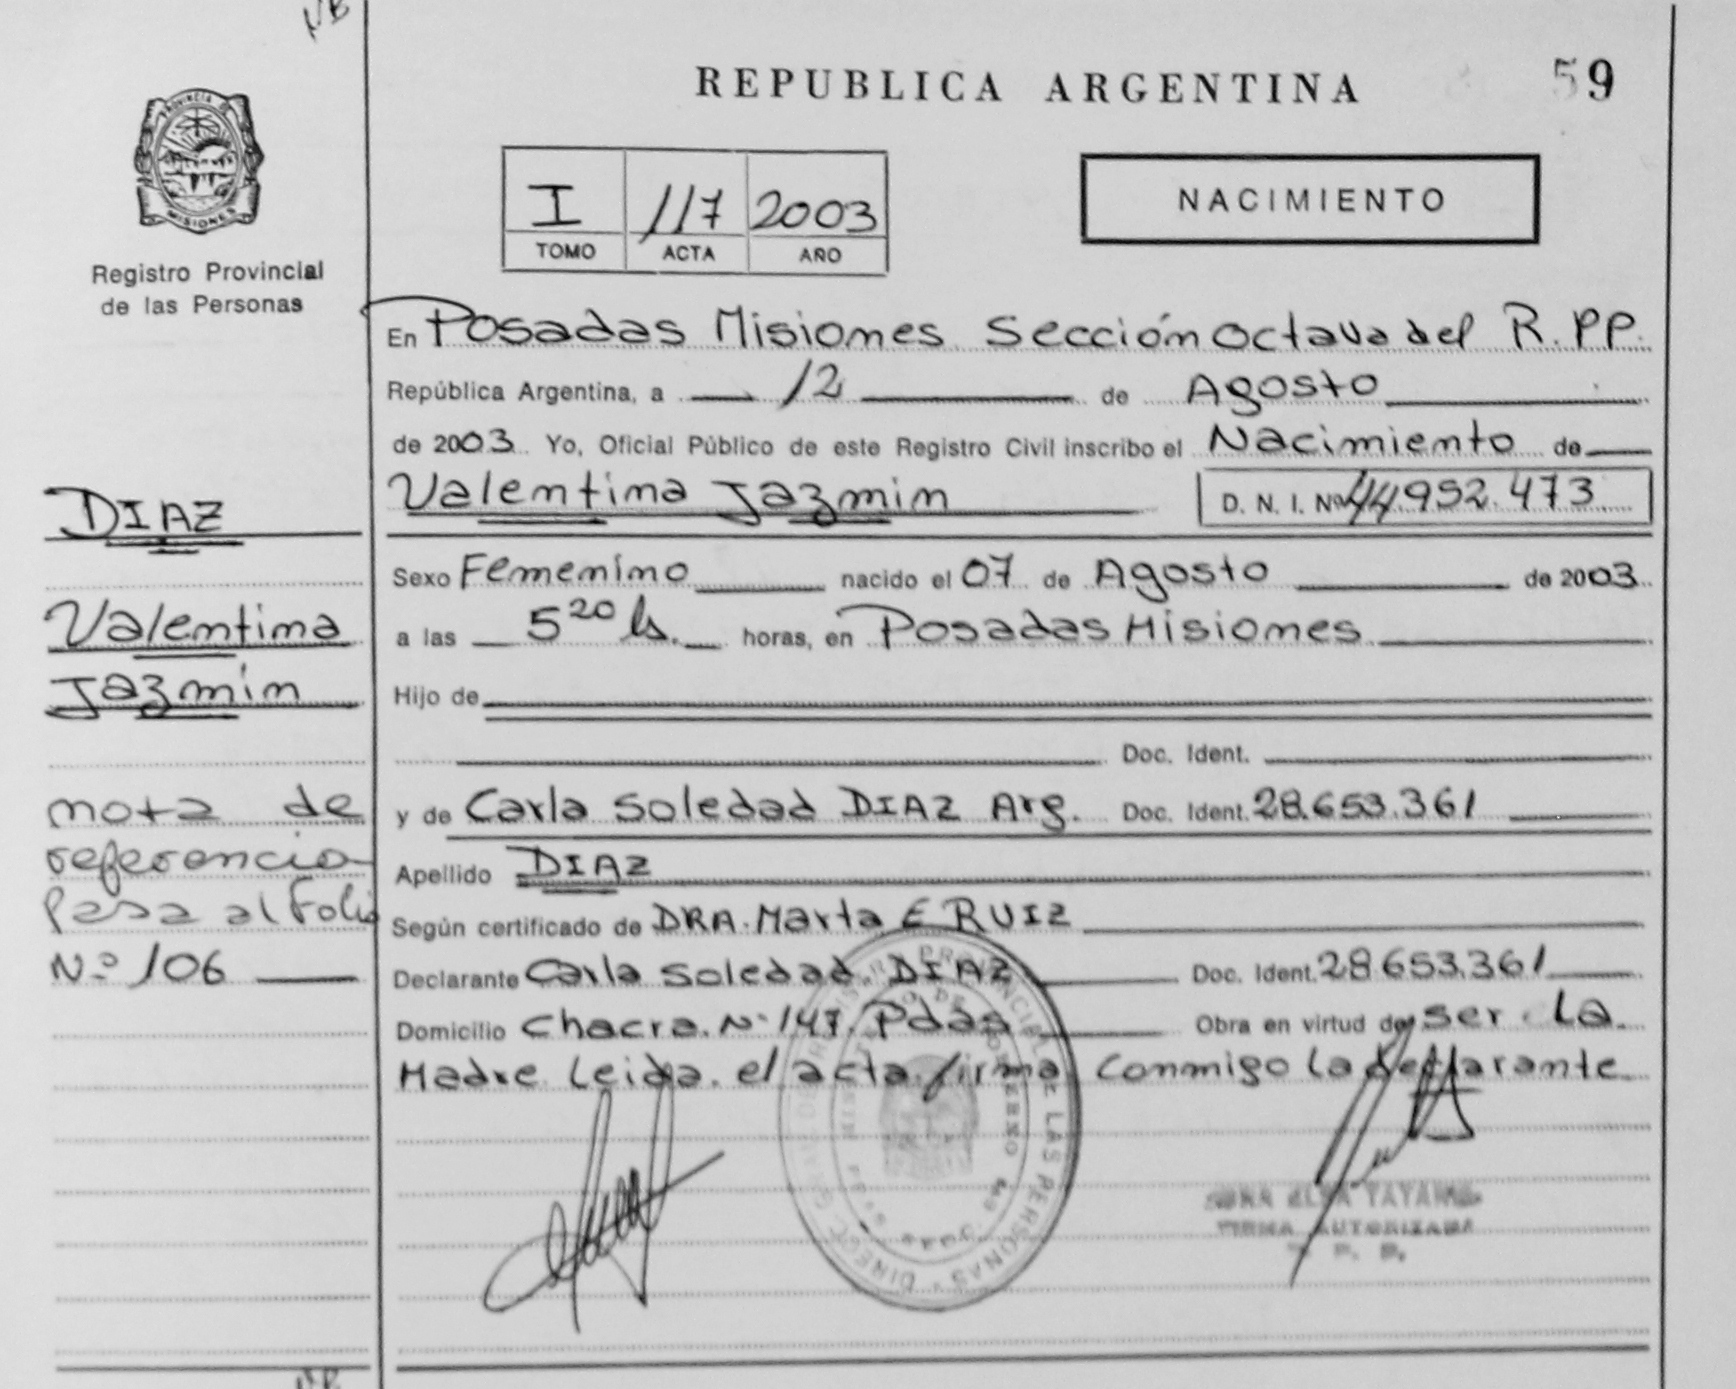 REPUBLICA ARGENTINA
59
PROVINCIA DE
MISIONES
Registro Provincial
de las Personas
I 117 2003
TOMO ACTA AÑO
NACIMIENTO
En Posadas Misiones Sección Octava del R.PP.
República Argentina, a 12 de Agosto
de 2003 Yo, Oficial Público de este Registro Civil inscribo el Nacimiento de
Valentina Jazmin D. N. I. Nº 44.952.473
Sexo Femenino nacido el 07 de Agosto de 2003
a las 5 20 hs. horas, en Posadas Misiones
Hijo de
Doc. Ident.
y de Carla Soledad DIAZ Arg. Doc. Ident. 28.653.361
Apellido DIAZ
Según certificado de DRA. Marta E RUIZ
Declarante Carla Soledad DIAZ Doc. Ident. 28.653.361
Domicilio Chacra. Nº 147. Pdas Obra en virtud de ser La
Madre Leida. el acta firma Conmigo la declarante
DIAZ
Valentina
Jazmin
nota de
referencia
Pasa al Folio
Nº 106
FIRMA AUTORIZADA